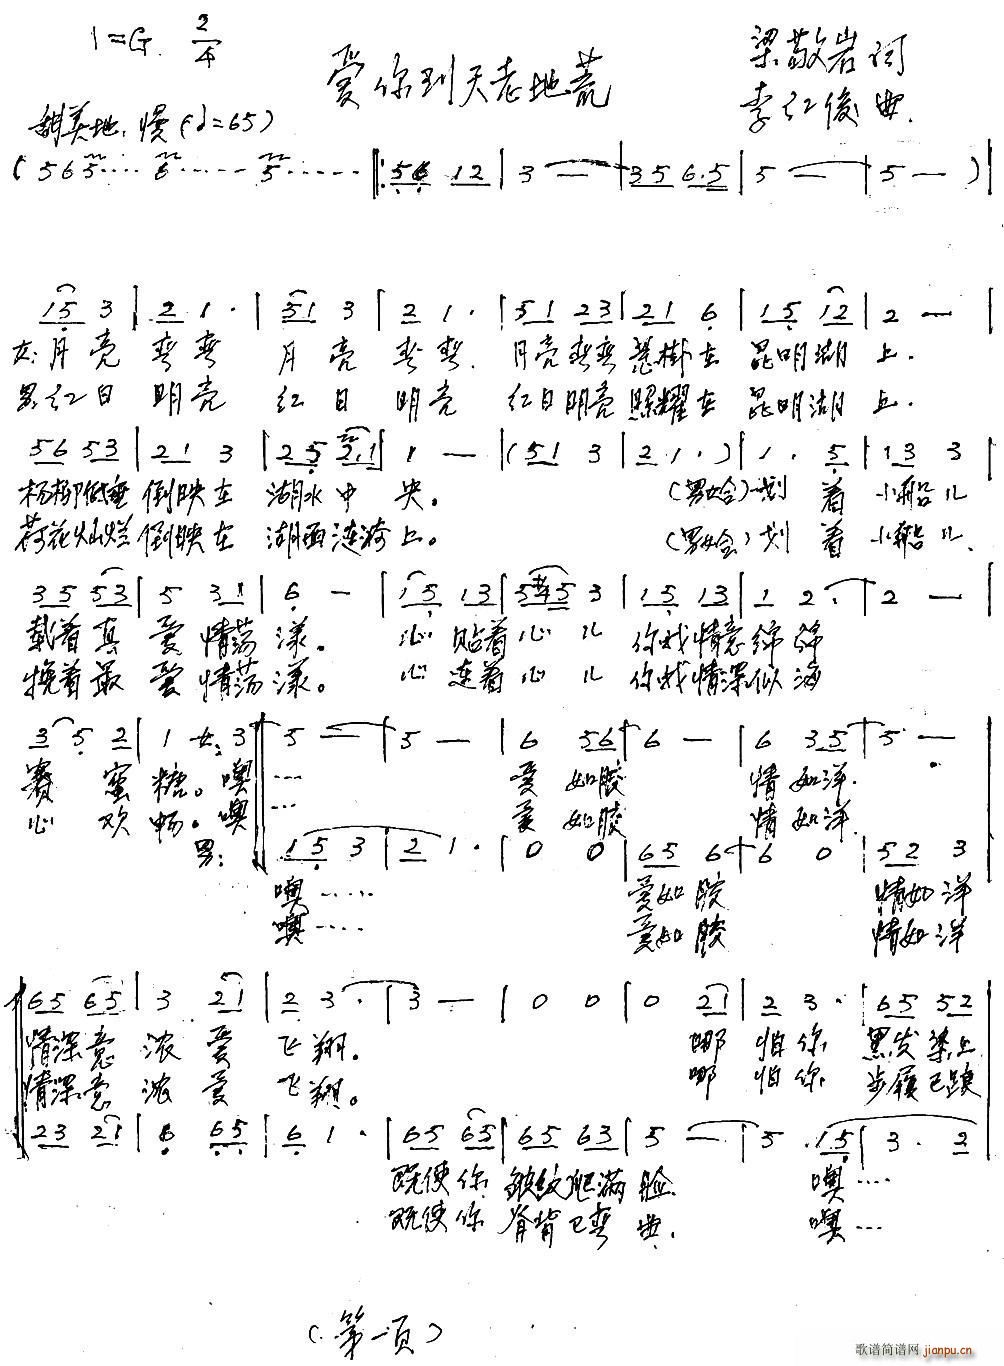 1=G 2/4
爱你到天老地荒
梁敬岩词
李红俊曲.
甜美地,慢(♩=65)
(5 6 5 ···· 6 ······ 5 ······ ‖: 5 6 1 2 | 3 — | 3 5 6.5 | 5 — | 5 — ) |
1 5 3 | 2 1 · | 5 1 3 | 2 1 · | 5 1 2 3 | 2 1 6 | 1 5 1 2 | 2 — |
女:月亮 弯弯 月亮 弯弯. 月亮弯弯 悬掛在 昆明湖 上.
男:红日 明亮 红日 明亮 红日明亮 照耀在 昆明湖 上.
5 6 5 3 | 2 1 3 | 2 5 2.1 | 1 — | (5 1 3 | 2 1 · ) | 1 · 5 | 1 3 3 |
杨柳低垂 倒映在 湖水中 央。 (男女合)划 着 小船儿
荷花灿烂 倒映在 湖面涟漪 上。 (男女合)划 着 小船儿.
3 5 5 3 | 5 3 1 | 6 — | 1 5 1 3 | 5 #4 5 3 | 1 5 1 3 | 1 2 · | 2 — |
载着真 爱情荡 漾。 心 贴着心儿 你我情意绵 绵
挽着最 爱情荡 漾。 心 连着心儿 你我情深似 海
3 5 2 | 1 女:3 ‖ 5 — | 5 — | 6 5 6 | 6 — | 6 3 5 | 5 — |
赛 蜜 糖。噢 ··· 爱 如胶 情 如洋.
心 欢 畅。噢 ··· 爱 如胶 情 如洋.
男: 1 5 3 | 2 1 · | 0 0 | 6 5 6 | 6 0 | 5 2 3
噢···· 爱如胶 情如洋
噢···· 爱如胶 情如洋
6 5 6 5 | 3 2 1 | 2 3 · | 3 — | 0 0 | 0 2 1 | 2 3 · | 6 5 5 2
情深意 浓 爱 飞翔。 哪 怕你 黑发染上
情深意 浓 爱 飞翔。 哪 怕你 步履已踉
2 3 2 1 | 6 6 5 | 6 1 · | 6 5 6 5 | 6 5 6 3 | 5 — | 5 · 1 5 | 3 · 2
既使你 皱纹爬满 脸. 噢····
既使你 脊背已弯 曲. 噢···
(第一页)
歌谱简谱网
jianpu.cn